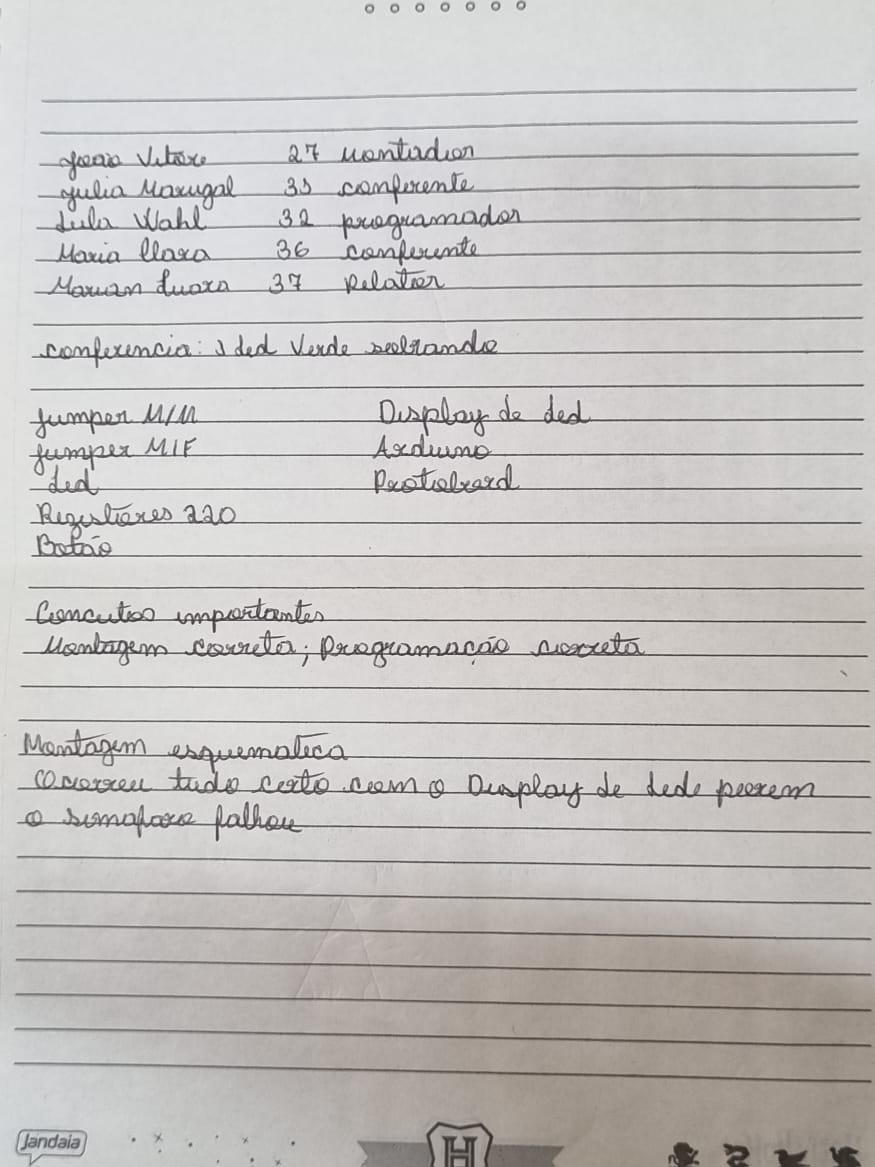 João Vitor 27 montador
Julia Marugal 33 conferente
Lula Wahl 32 programador
Maria Clara 36 conferente
Marian Luara 37 Relator
conferencia: 1 led Verde sobrando
Jumper M/M Display de led
Jumper M/F Arduino
led Protoboard
Resistores 220
Botão
Conceitos importantes
Montagem correta; Programação correta
Montagem esquematica
Ocorreu tudo certo com o Display de Lede porem
o semaforo falhou
Jandaia
H